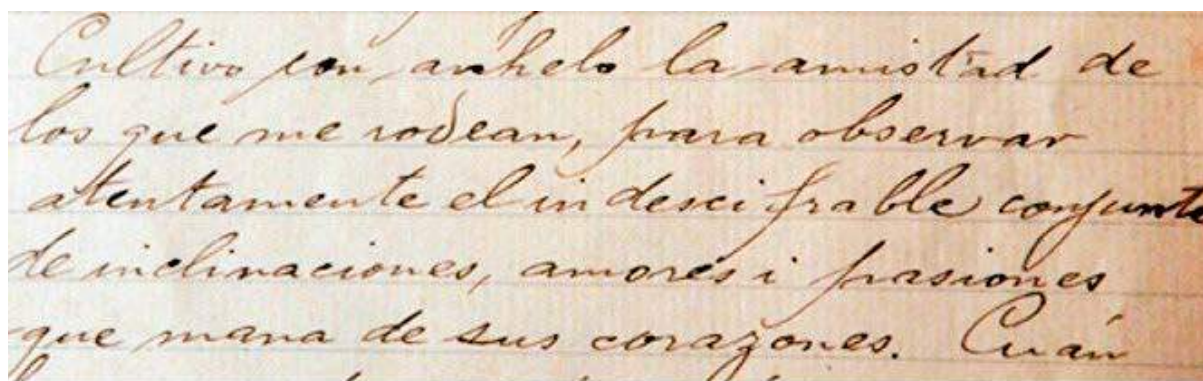 Cultivo con anhelo la amistad de
los que me rodean, para observar
atentamente el indescifrable conjunto
de inclinaciones, amores i pasiones
que mana de sus corazones. Cuán